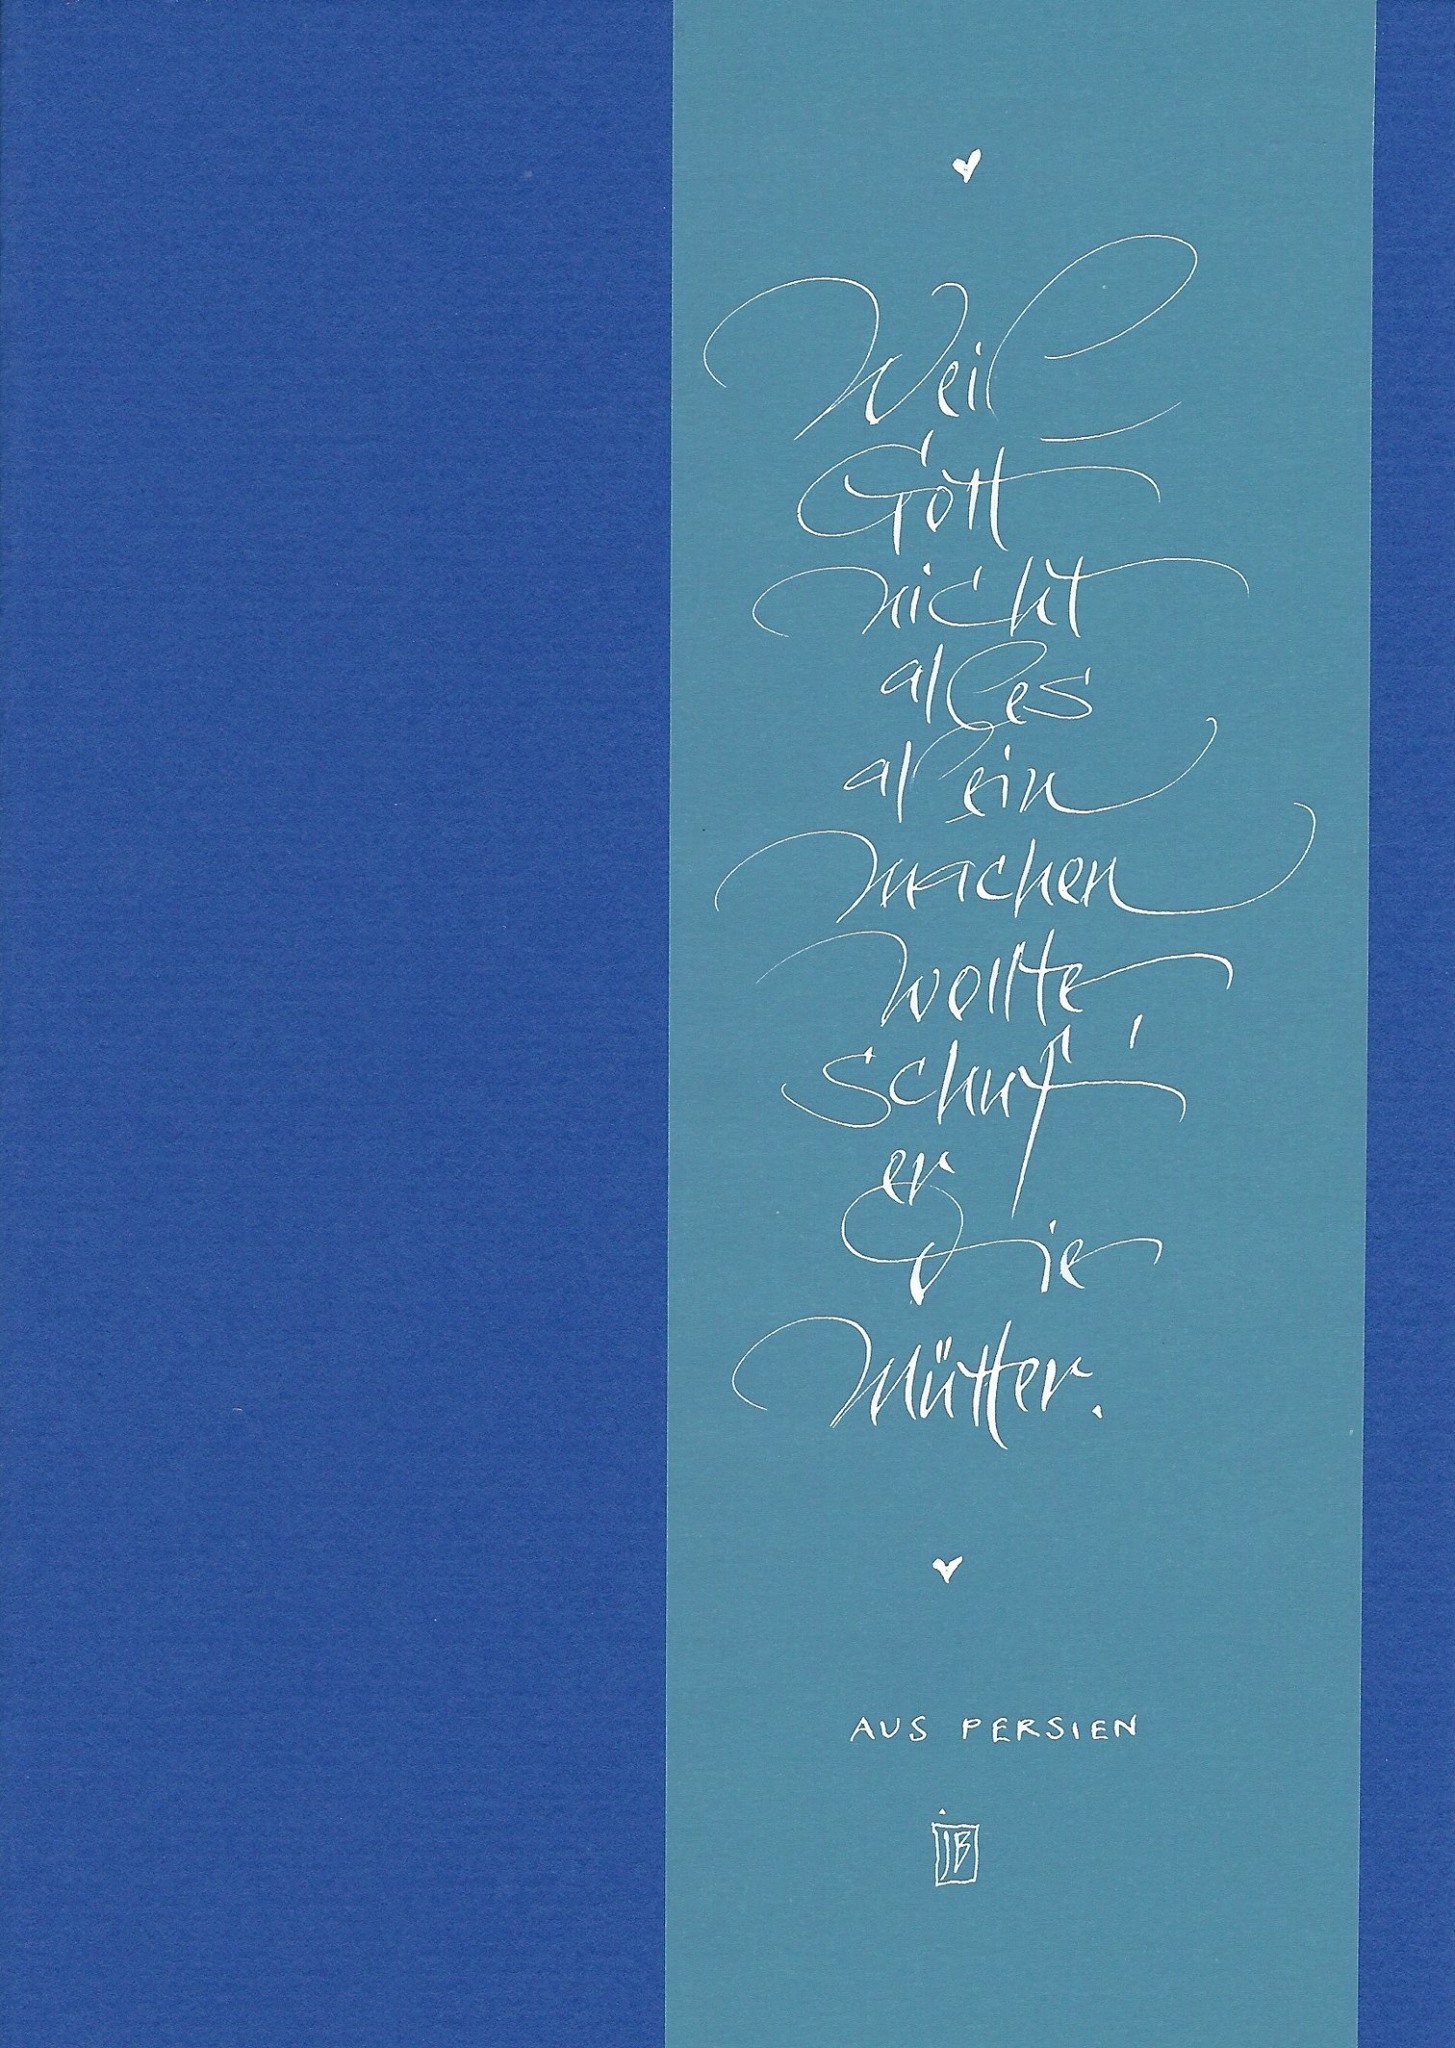 Weil
Gott
nicht
alles
allein
machen
wollte
schuf
er
die
Mütter.
AUS PERSIEN
JB